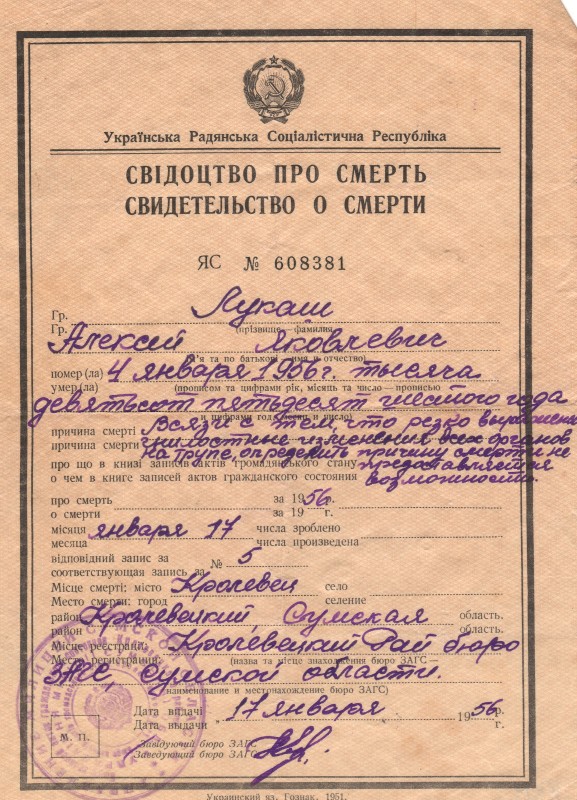 Українська Радянська Соціалістична Республіка
СВІДОЦТВО ПРО СМЕРТЬ
СВИДЕТЕЛЬСТВО О СМЕРТИ
ЯС № 608381
Гр. Лукаш
Гр. (прізвище, фамилия)
Алексей Яковлевич
ім'я та по батькові, имя и отчество)
помер(ла) 4 января 1956 г. тысяча
умер(ла) (прописом та цифрами рік, місяць та число — прописью
девятьсот пятьдесят шестого года
и цифрами год, месяц и число)
причина смерті Всвязи с тем, что резко выражены
причина смерти гнилостные изменения всех органов
на трупе, определить причину смерти не
про що в книзі записів актів громадянського стану представляется
о чем в книге записей актов гражданского состояния возможности.
про смерть за 1956 р.
о смерти за 19 г.
місяця января 17 числа зроблено
месяца числа произведена
відповідний запис за
соответствующая запись за № 5
Місце смерті: місто Кролевец село
Место смерти: город селение
район Кролевецкий Сумская область.
район область.
Місце реєстрації Кролевецкий Рай бюро
Место регистрации: (назва та місце знаходження бюро ЗАГС)
ЗАГС, Сумской области.
(наименование и местонахождение бюро ЗАГС)
Дата видачі 17 января 1956 р.
Дата выдачи г.
М. П.
Завідуючий бюро ЗАГС
Заведующий бюро ЗАГС
Украинский яз. Гознак. 1951.